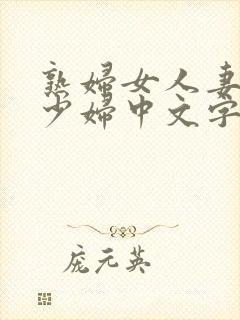 熟婦女人妻
少婦中文字
庞元英